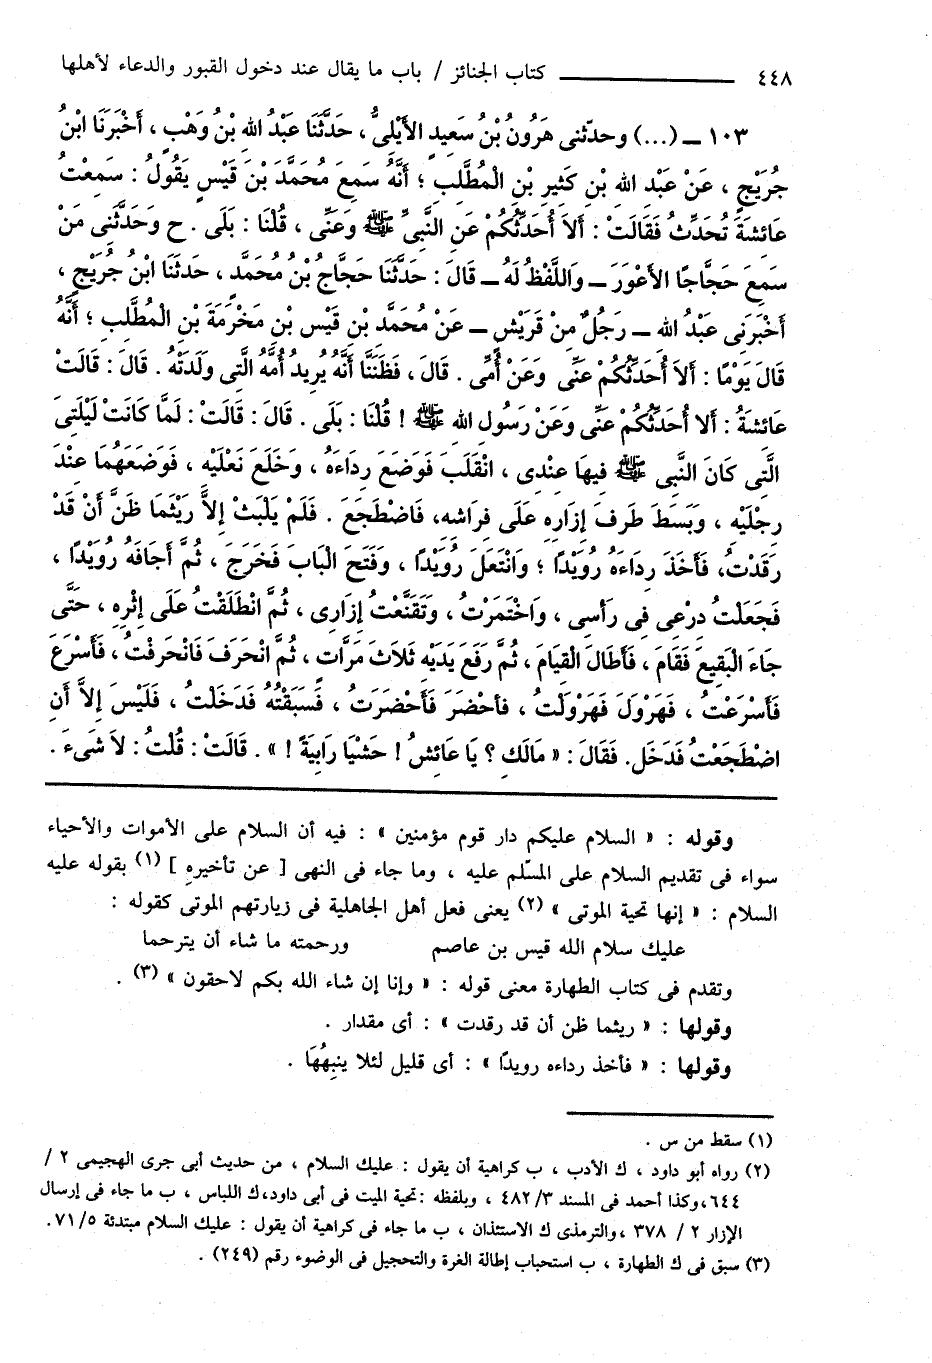 ٤٤٨ ــــــــــــ كتاب الجنائز / باب ما يقال عند دخول القبور والدعاء لأهلها
١٠٣ ــ (...) وحدّثنى هَرُونُ بْنُ سَعِيدٍ الأَيْلِىُّ ، حَدَّثَنَا عَبْدُ اللهِ بْنُ وَهْبٍ ، أَخْبَرَنَا ابْنُ
جُرَيْجٍ ، عَنْ عَبْدِ اللهِ بْنِ كَثِيرِ بْنِ الْمُطَّلِبِ ؛ أَنَّهُ سَمِعَ مُحَمَّدَ بْنَ قَيْسٍ يَقُولُ : سَمِعْتُ
عَائِشَةَ تُحَدِّثُ فَقَالَتْ : أَلاَ أُحَدِّثُكُمْ عَنِ النَّبِىِّ ﷺ وَعَنِّى ، قُلْنَا : بَلَى . ح وَحَدَّثَنِى مَنْ
سَمِعَ حَجَّاجًا الأَعْوَرَ ــ وَاللَّفْظُ لَهُ ــ قَالَ : حَدَّثَنَا حَجَّاجُ بْنُ مُحَمَّدٍ ، حَدَّثَنَا ابْنُ جُرَيْجٍ ،
أَخْبَرَنِى عَبْدُ اللهِ ــ رَجُلٌ مِنْ قُرَيْشٍ ــ عَنْ مُحَمَّدِ بْنِ قَيْسِ بْنِ مَخْرَمَةَ بْنِ الْمُطَّلِبِ ؛ أَنَّهُ
قَالَ يَوْمًا : أَلاَ أُحَدِّثُكُمْ عَنِّى وَعَنْ أُمِّى . قَالَ ، فَظَنَنَّا أَنَّهُ يُرِيدُ أُمَّهُ الَّتِى وَلَدَتْهُ . قَالَ : قَالَتْ
عَائِشَةُ : أَلاَ أُحَدِّثُكُمْ عَنِّى وَعَنْ رَسُولِ اللهِ ﷺ ! قُلْنَا : بَلَى . قَالَ : قَالَتْ : لَمَّا كَانَتْ لَيْلَتِىَ
الَّتِى كَانَ النَّبِى ﷺ فِيهَا عِنْدِى ، انْقَلَبَ فَوَضَعَ رِدَاءَهُ ، وَخَلَعَ نَعْلَيْهِ ، فَوَضَعَهُمَا عِنْدَ
رِجْلَيْهِ ، وَبَسَطَ طَرفَ إِزَارِهِ عَلَى فِرَاشِهِ، فَاضْطَجَعَ . فَلَمْ يَلْبَثْ إِلاَّ رَيْثَمَا ظَنَّ أَنْ قَدْ
رَقَدْتُ، فَأَخَذَ رِدَاءَهُ رُوَيْدًا ؛ وَانْتَعَلَ رُوَيْدًا ، وَفَتَحَ الْبَابَ فَخَرَجَ ، ثُمَّ أَجَافَهُ رُوَيْدًا ،
فَجَعَلْتُ دِرْعِى فِى رَأْسِى ، وَاخْتَمَرْتُ ، وَتَقَنَّعْتُ إِزَارِى ، ثُمَّ انْطَلَقْتُ عَلَى إِثْرِهِ ، حَتَّى
جَاءَ الْبَقِيعَ فَقَامَ ، فَأَطَالَ الْقِيَامَ ، ثُمَّ رَفَعَ يَدَيْهِ ثَلاَثَ مَرَّاتٍ ، ثُمَّ انْحَرَفَ فَانْحَرَفْتُ ، فَأَسْرَعَ
فَأَسْرَعْتُ ، فَهَرْوَلَ فَهَرْوَلْتُ ، فأحْضَرَ فَأَحْضَرَتُ ، فَسَبَقْتُهُ فَدَخَلْتُ ، فَلَيْسَ إِلاَّ أَنِ
اضْطَجَعْتُ فَدَخَل. فَقَالَ : « مَالَكِ ؟ يَا عَائِشُ ! حَشْيَا رَابِيَةً ! » . قَالَتْ : قُلْتُ : لاَ شَىءَ .
وقوله : « السلام عليكم دار قوم مؤمنين » : فيه أن السلام على الأموات والأحياء
سواء فى تقديم السلام على المسّلم عليه ، وما جاء فى النهى [ عن تأخيرهِ ] (١) بقوله عليه
السلام : « إنها تحية الموتى » (٢) يعنى فعل أهل الجاهلية فى زيارتهم الموتى كقوله :
عليك سلام الله قيس بن عاصم ورحمته ما شاء أن يترحما
وتقدم فى كتاب الطهارة معنى قوله : « وإنا إن شاء الله بكم لاحقون » (٣) .
وقولها : « ريثما ظن أن قد رقدت » : أى مقدار .
وقولها : « فأخذ رداءه رويدًا » : أى قليل لئلا ينبهُهَا .
(١) سقط من س .
(٢) رواه أبو داود ، ك الأدب ، ب كراهية أن يقول : عليك السلام ، من حديث أبى جرى الهجيمى ٢ /
٦٤٤ ،وكذا أحمد فى المسند ٣/ ٤٨٢ ، وبلفظه :تحية الميت فى أبى داود،ك اللباس ، ب ما جاء فى إرسال
الإزار ٢ / ٣٧٨ ،والترمذى ك الاستئذان ، ب ما جاء فى كراهية أن يقول : عليك السلام مبتدئة ٥/ ٧١.
(٣) سبق فى ك الطهارة ، ب استحباب إطالة الغرة والتحجيل فى الوضوء رقم (٢٤٩) .